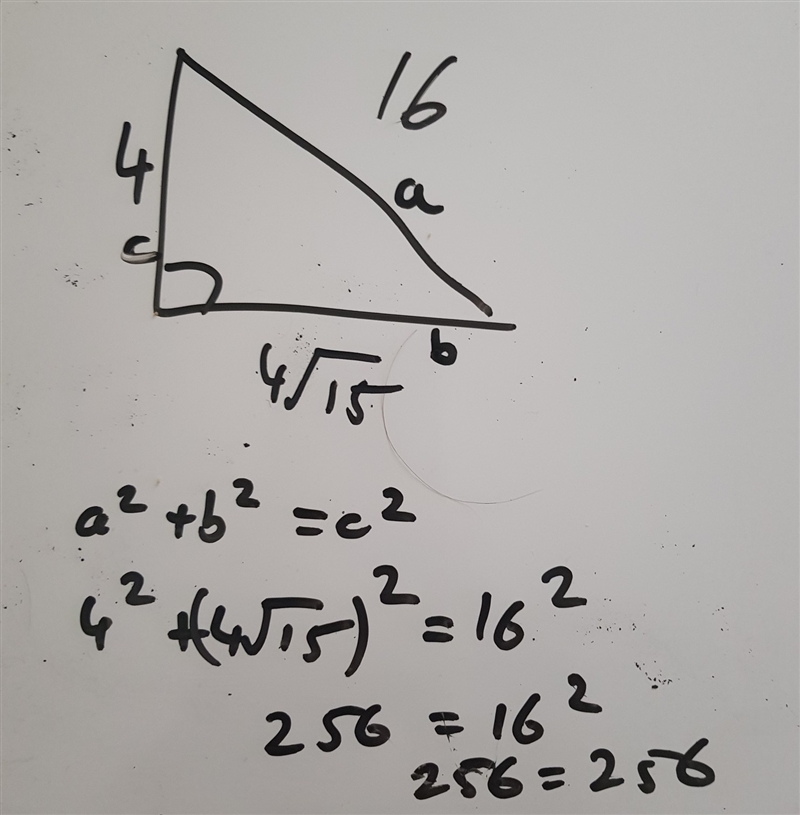 16
4
a
c
b
4√15
a² + b² = c²
4² + (4√15)² = 16²
256 = 16²
256 = 256